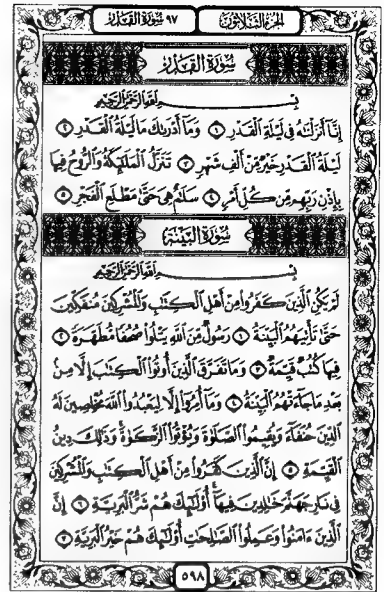 الجزء الثلاثون
٩٧ سورة القدر
سُورَةُ القَدْرِ
بِسْمِ اللَّهِ الرَّحْمَٰنِ الرَّحِيمِ
إِنَّآ أَنزَلْنَٰهُ فِى لَيْلَةِ ٱلْقَدْرِ ١ وَمَآ أَدْرَىٰكَ مَا لَيْلَةُ ٱلْقَدْرِ ٢
لَيْلَةُ ٱلْقَدْرِ خَيْرٌ مِّنْ أَلْفِ شَهْرٍ ٣ تَنَزَّلُ ٱلْمَلَٰٓئِكَةُ وَٱلرُّوحُ فِيهَا
بِإِذْنِ رَبِّهِم مِّن كُلِّ أَمْرٍ ٤ سَلَٰمٌ هِىَ حَتَّىٰ مَطْلَعِ ٱلْفَجْرِ ٥
سُورَةُ البَيِّنَةِ
بِسْمِ اللَّهِ الرَّحْمَٰنِ الرَّحِيمِ
لَمْ يَكُنِ ٱلَّذِينَ كَفَرُوا۟ مِنْ أَهْلِ ٱلْكِتَٰبِ وَٱلْمُشْرِكِينَ مُنفَكِّينَ
حَتَّىٰ تَأْتِيَهُمُ ٱلْبَيِّنَةُ ١ رَسُولٌ مِّنَ ٱللَّهِ يَتْلُوا۟ صُحُفًا مُّطَهَّرَةً ٢
فِيهَا كُتُبٌ قَيِّمَةٌ ٣ وَمَا تَفَرَّقَ ٱلَّذِينَ أُوتُوا۟ ٱلْكِتَٰبَ إِلَّا مِنۢ
بَعْدِ مَا جَآءَتْهُمُ ٱلْبَيِّنَةُ ٤ وَمَآ أُمِرُوٓا۟ إِلَّا لِيَعْبُدُوا۟ ٱللَّهَ مُخْلِصِينَ لَهُ
ٱلدِّينَ حُنَفَآءَ وَيُقِيمُوا۟ ٱلصَّلَوٰةَ وَيُؤْتُوا۟ ٱلزَّكَوٰةَ وَذَٰلِكَ دِينُ
ٱلْقَيِّمَةِ ٥ إِنَّ ٱلَّذِينَ كَفَرُوا۟ مِنْ أَهْلِ ٱلْكِتَٰبِ وَٱلْمُشْرِكِينَ
فِى نَارِ جَهَنَّمَ خَٰلِدِينَ فِيهَآ أُو۟لَٰٓئِكَ هُمْ شَرُّ ٱلْبَرِيَّةِ ٦ إِنَّ
ٱلَّذِينَ ءَامَنُوا۟ وَعَمِلُوا۟ ٱلصَّٰلِحَٰتِ أُو۟لَٰٓئِكَ هُمْ خَيْرُ ٱلْبَرِيَّةِ ٧
٥٩٨